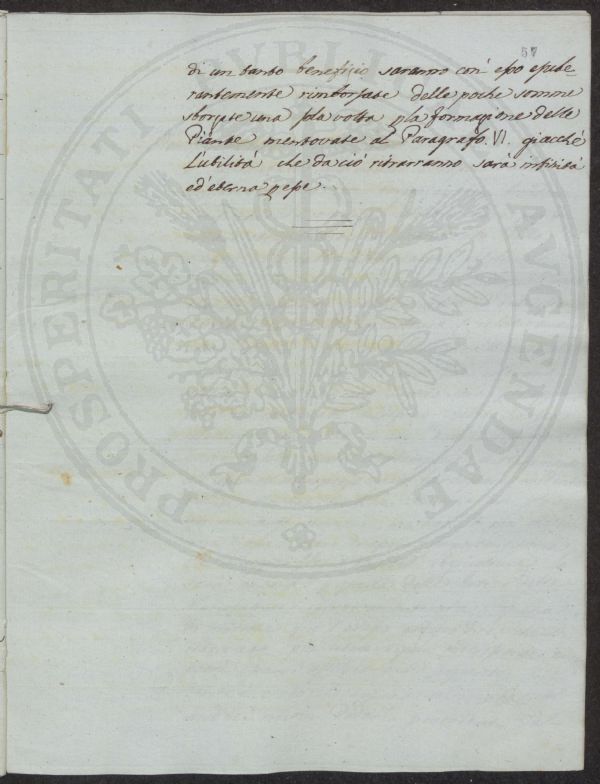 57
di un tanto beneficio saranno con' esso esube
rantemente rimborsate delle poche somme
sborsate una sola volta p la formazione delle
Piante mentovate al Paragrafo. VI. giacchè
L'utilità che da ciò ritrarranno sarà infinità
ed' eterna
PROSPERITATI PVBLICAE AVGENDAE